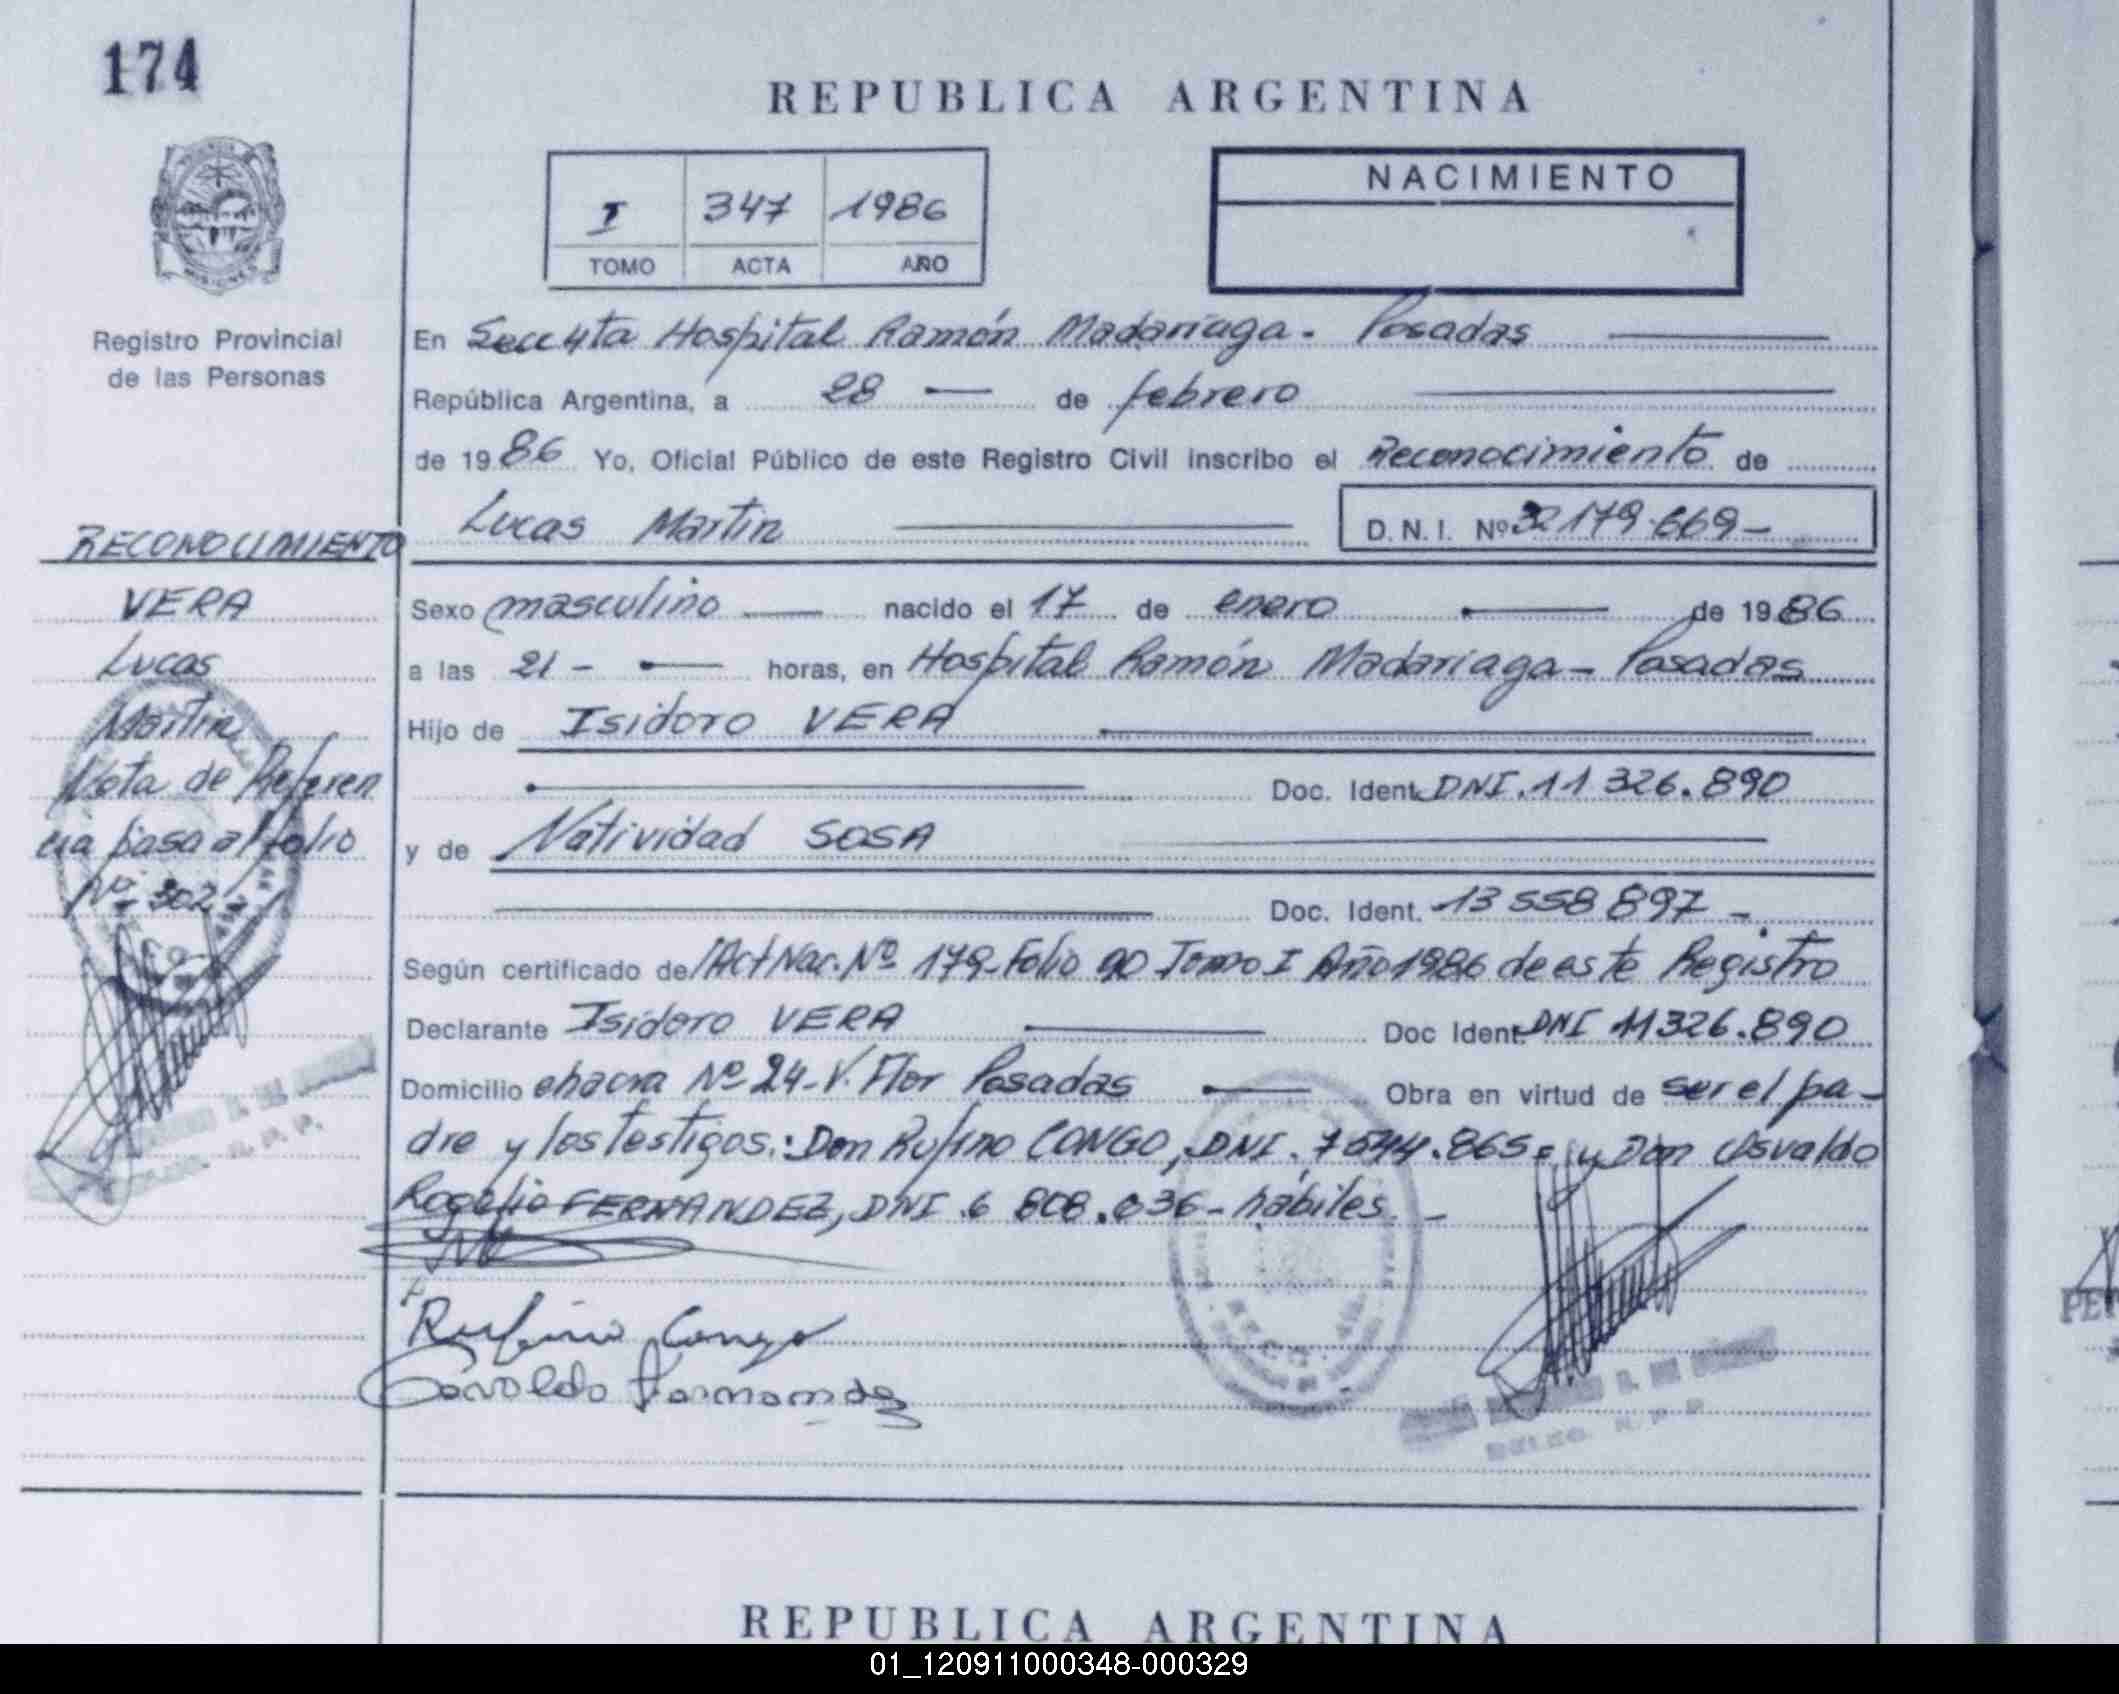 174
REPUBLICA ARGENTINA
I 347 1986
TOMO ACTA AÑO
NACIMIENTO
MISIONES
Registro Provincial
de las Personas
En Secc 4ta Hospital Ramón Madariaga - Posadas
República Argentina, a 28 — de febrero
de 1986 Yo, Oficial Público de este Registro Civil inscribo el Reconocimiento de
Lucas Martin D.N.I. Nº 32179.669-
RECONOCIMIENTO
VERA
Lucas
Martin
Nota de Referen
cia pasa al folio
Nº 302-
Sexo masculino — nacido el 17 de enero — de 1986
a las 21 - — horas, en Hospital Ramón Madariaga - Posadas
Hijo de Isidoro VERA
Doc. Ident. DNI. 11 326.890
y de Natividad SOSA
Doc. Ident. 13 558 897 -
Según certificado de Act Nac. Nº 179- Folio 90 Tomo I Año 1986 de este Registro
Declarante Isidoro VERA — Doc Ident. DNI 11326.890
Domicilio chacra Nº 24- V. Flor Posadas — Obra en virtud de ser el pa-
dre y los testigos: Don Rufino CONGO, DNI. 7544.865= y Don Osvaldo
Rogelio FERNANDEZ, DNI 6 808.036- hábiles. -
Rufino Congo
Osvaldo Fernandez
REPUBLICA ARGENTINA
01_120911000348-000329